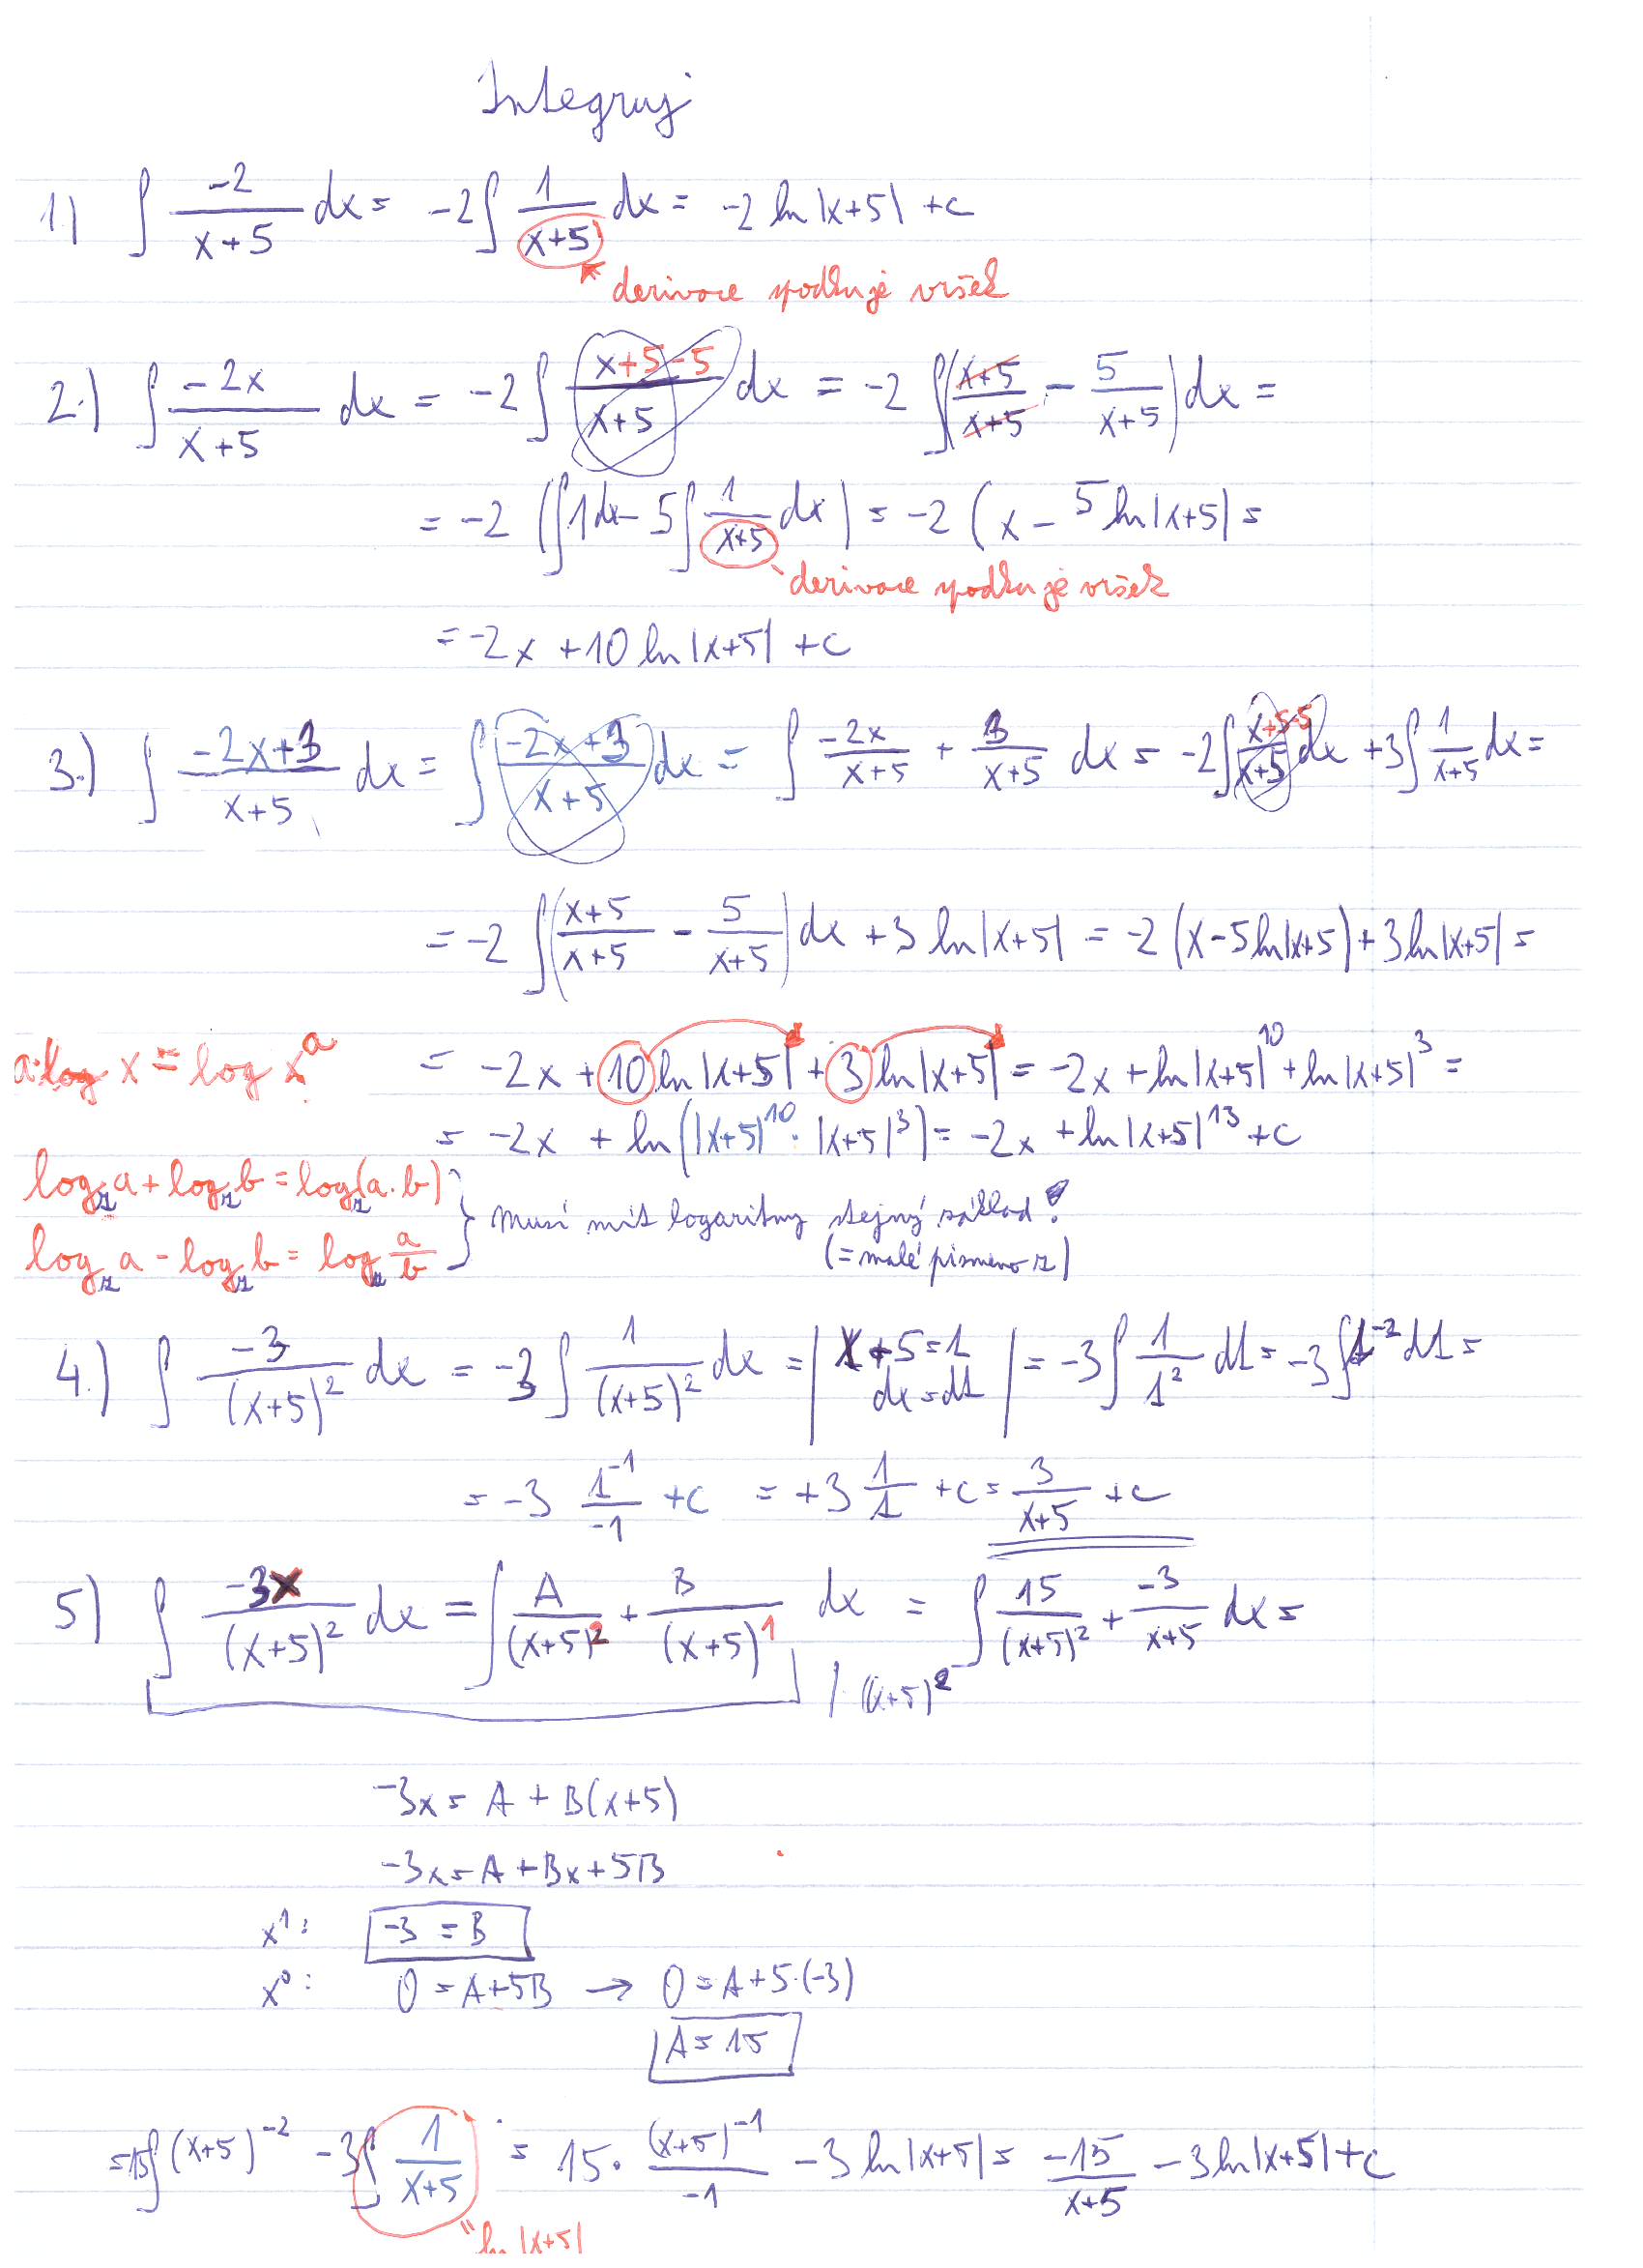 Integruj
1) ∫ -2/(x+5) dx = -2∫ 1/(x+5) dx = -2 ln|x+5| + c
derivace spodku je vršek
2.) ∫ -2x/(x+5) dx = -2∫ (x+5-5)/(x+5) dx = -2 ∫( (x+5)/(x+5) - 5/(x+5) ) dx =
= -2 ( ∫1dx - 5∫ 1/(x+5) dx ) = -2 ( x - 5 ln|x+5| =
derivace spodku je vršek
= -2x + 10 ln|x+5| + c
3.) ∫ (-2x+3)/(x+5) dx = ∫ (-2x+3)/(x+5) dx = ∫ -2x/(x+5) + 3/(x+5) dx = -2∫ (x+5-5)/(x+5) dx + 3∫ 1/(x+5) dx =
= -2 ∫( (x+5)/(x+5) - 5/(x+5) ) dx + 3 ln|x+5| = -2 (x - 5ln|x+5) + 3ln|x+5| =
a·log x = log x^a
= -2x + 10 ln|x+5| + 3 ln|x+5| = -2x + ln|x+5|^10 + ln|x+5|^3 =
= -2x + ln(|x+5)^10 · |x+5|^3) = -2x + ln|x+5|^13 + c
log_z a + log_z b = log_z(a·b)
log_z a - log_z b = log_z a/b
} Musí mít logaritmy stejný základ!
(= malé písmeno z)
4.) ∫ -3/(x+5)^2 dx = -3 ∫ 1/(x+5)^2 dx = | x+5=t
dx=dt | = -3∫ 1/t^2 dt = -3∫t^-2 dt =
= -3 t^-1/-1 + c = +3 1/t + c = 3/(x+5) + c
5) ∫ -3x/(x+5)^2 dx = ∫ A/(x+5)^2 + B/(x+5)^1 dx = ∫ 15/(x+5)^2 + -3/(x+5) dx =
/·(x+5)^2
-3x = A + B(x+5)
-3x = A + Bx + 5B
x^1: -3 = B
x^0: 0 = A+5B → 0 = A+5·(-3)
A = 15
= 15∫ (x+5)^-2 - 3∫ 1/(x+5) = 15 · (x+5)^-1/-1 - 3 ln|x+5| = -15/(x+5) - 3 ln|x+5| + c
"ln|x+5|